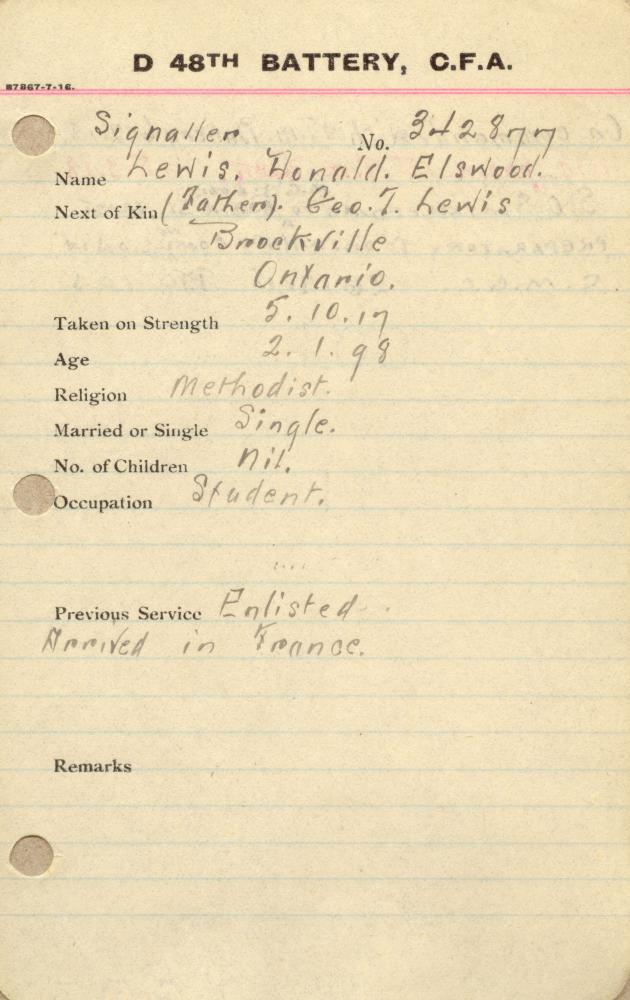 D 48TH BATTERY, C.F.A.
87867-7-16.
Signaller No. 342877
Name Lewis. Donald. Elswood.
Next of Kin (Father). Geo. T. Lewis
Brockville
Ontario.
Taken on Strength 5.10.17
Age 2.1.98
Religion Methodist.
Married or Single Single.
No. of Children Nil.
Occupation Student.
Previous Service Enlisted
Arrived in France.
Remarks